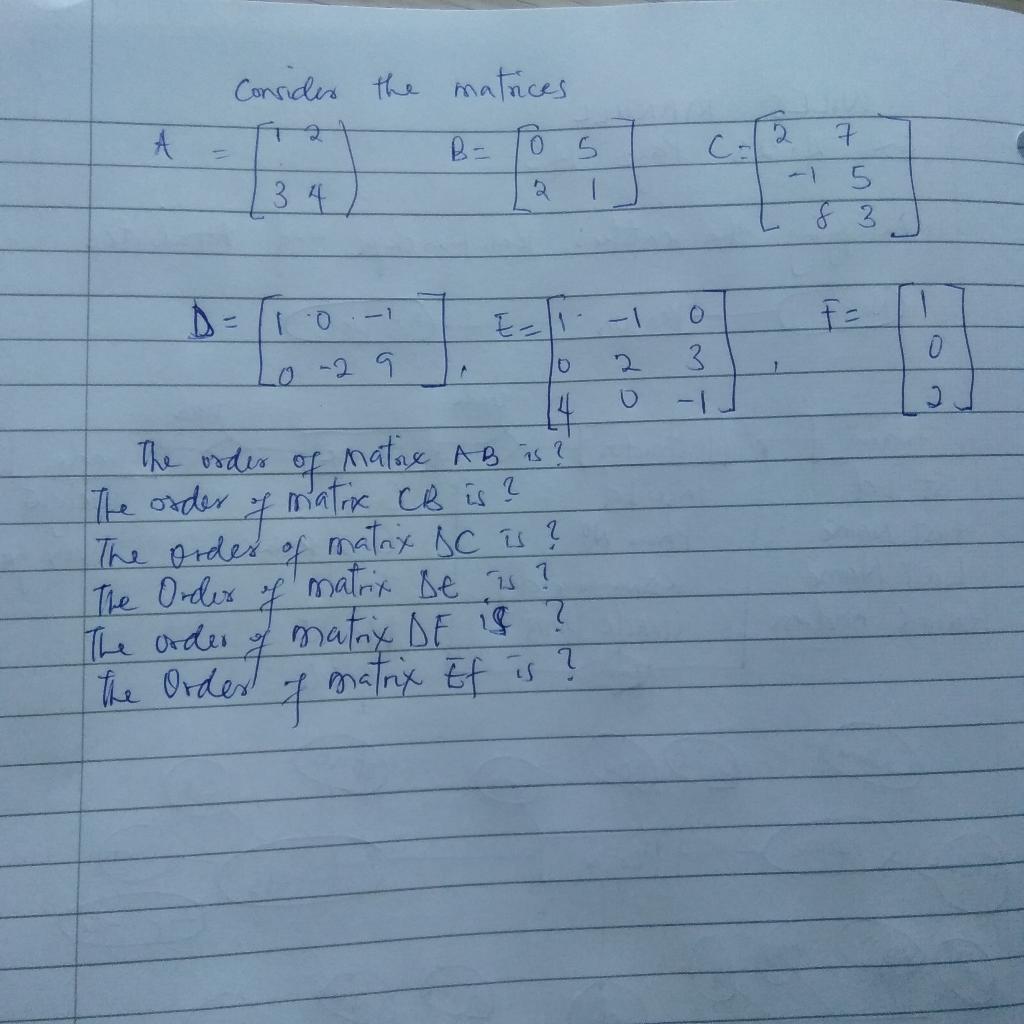 Consider the matrices
A = [1 2 B= [0 5 C= [2 7
3 4) 2 1] -1 5
8 3]
D= [1 0 -1 E= [1 -1 0 F= [1
0 -2 9], 0 2 3, 0
4 0 -1] 2]
The order of matrix AB is?
The order of matrix CB is?
The order of matrix DC is?
The Order of matrix DE is?
The order of matrix DF is ?
The Order of matrix Ef is ?